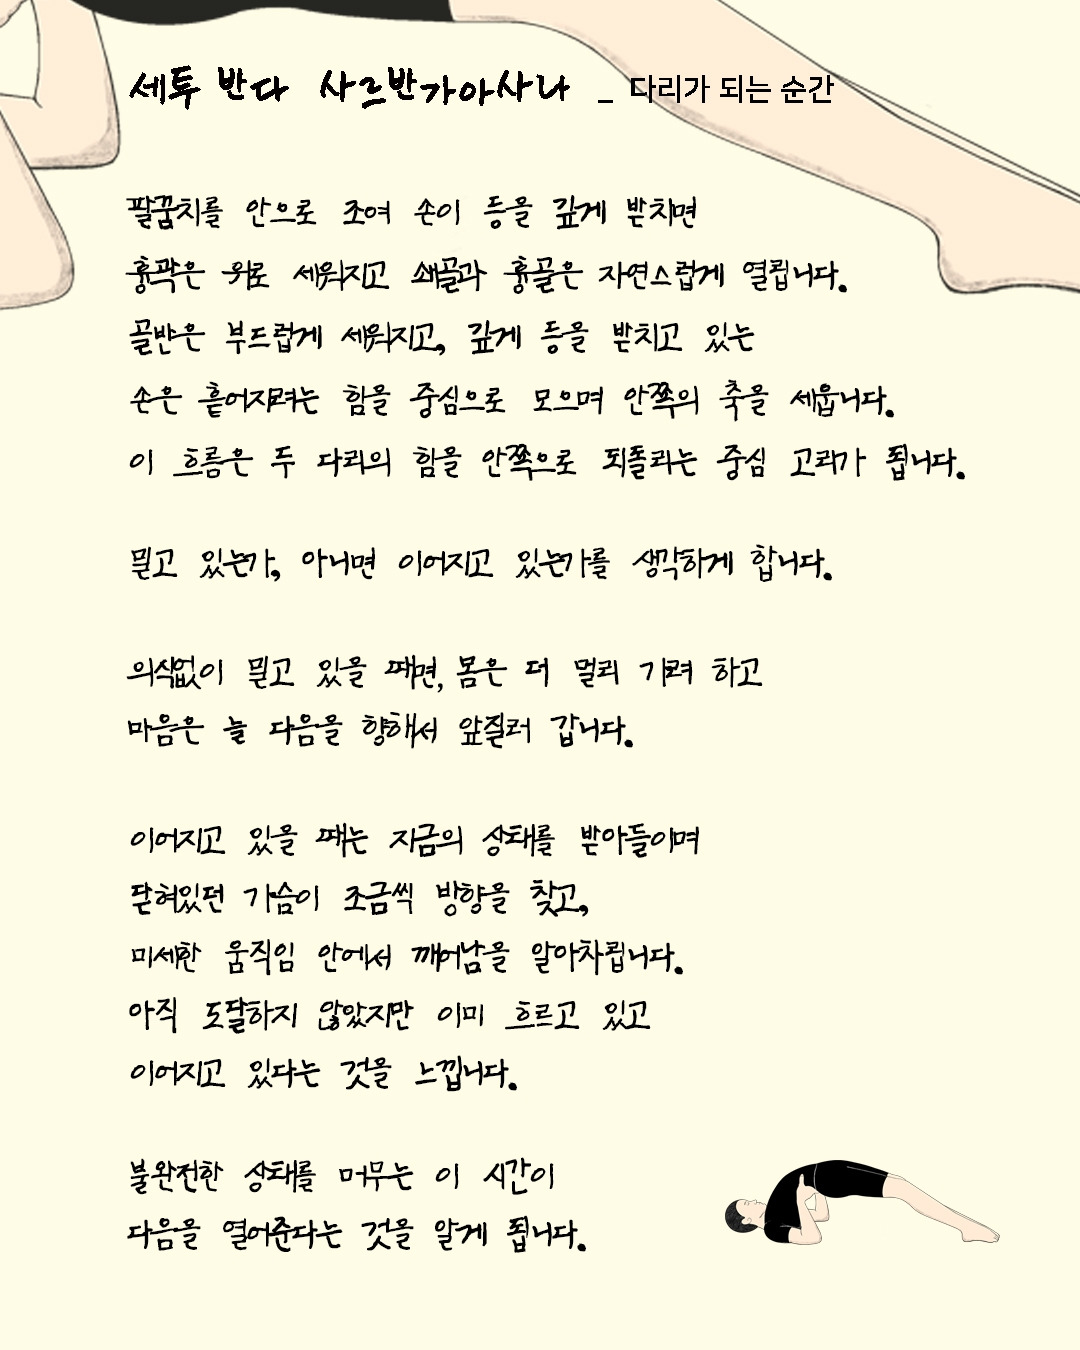 세투 반다 사르반가아사나 _ 다리가 되는 순간
팔꿈치를 안으로 조여 손이 등을 깊게 받치면
흉곽은 위로 세워지고 쇄골과 흉골은 자연스럽게 열립니다.
골반은 부드럽게 세워지고, 깊게 등을 받치고 있는
손은 흩어지려는 힘을 중심으로 모으며 안쪽의 축을 세웁니다.
이 흐름은 두 다리의 힘을 안쪽으로 되돌리는 중심 고리가 됩니다.
밀고 있는가, 아니면 이어지고 있는가를 생각하게 합니다.
의식없이 밀고 있을 때면, 몸은 더 멀리 가려 하고
마음은 늘 다음을 향해서 앞질러 갑니다.
이어지고 있을 때는 지금의 상태를 받아들이며
닫혀있던 가슴이 조금씩 방향을 찾고,
미세한 움직임 안에서 깨어남을 알아차립니다.
아직 도달하지 않았지만 이미 흐르고 있고
이어지고 있다는 것을 느낍니다.
불완전한 상태를 머무는 이 시간이
다음을 열어준다는 것을 알게 됩니다.